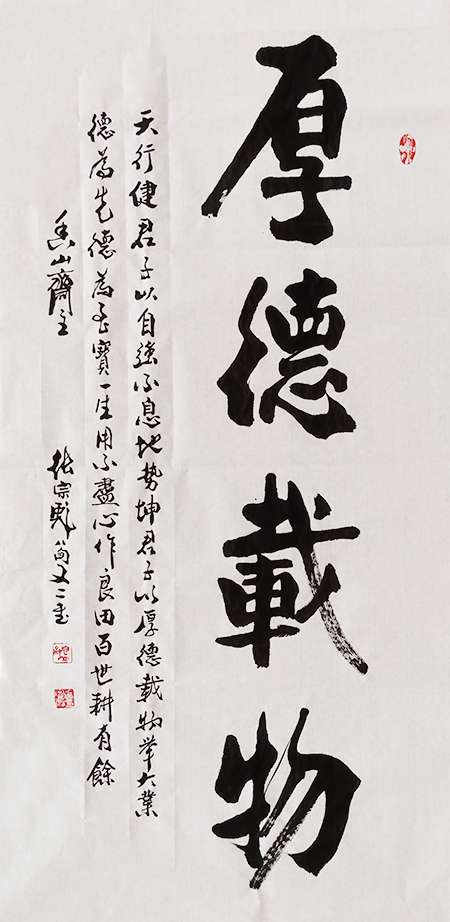 厚德載物
天行健君子以自強不息地勢坤君子以厚德載物舉大業
德為先德為至寶一生用不盡心作良田百世耕有餘
香山齋主
張宗彪